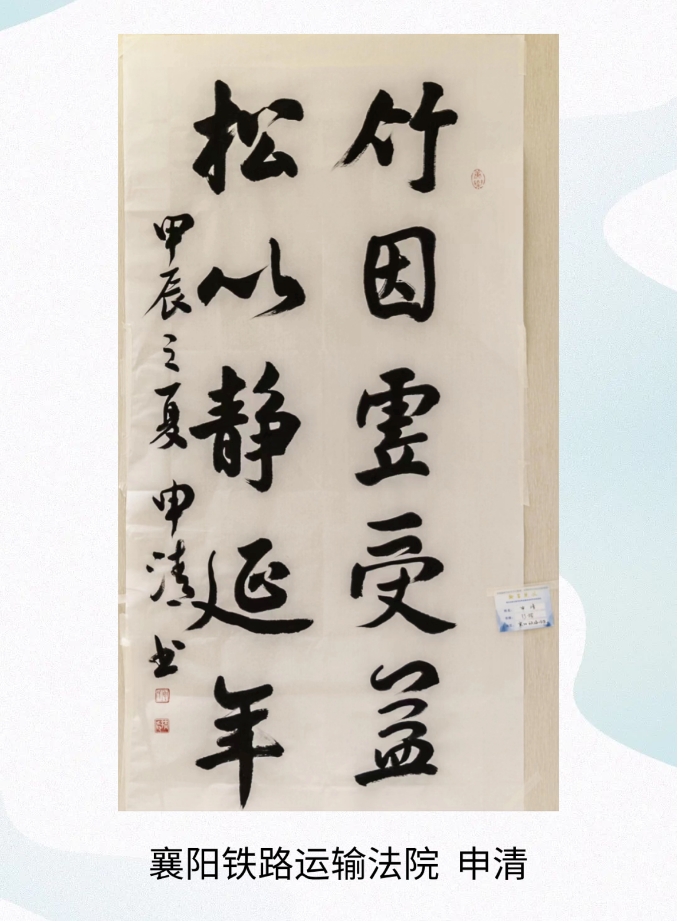 竹因虚受益
松以静延年
甲辰之夏 申清书
襄阳铁路运输法院 申清